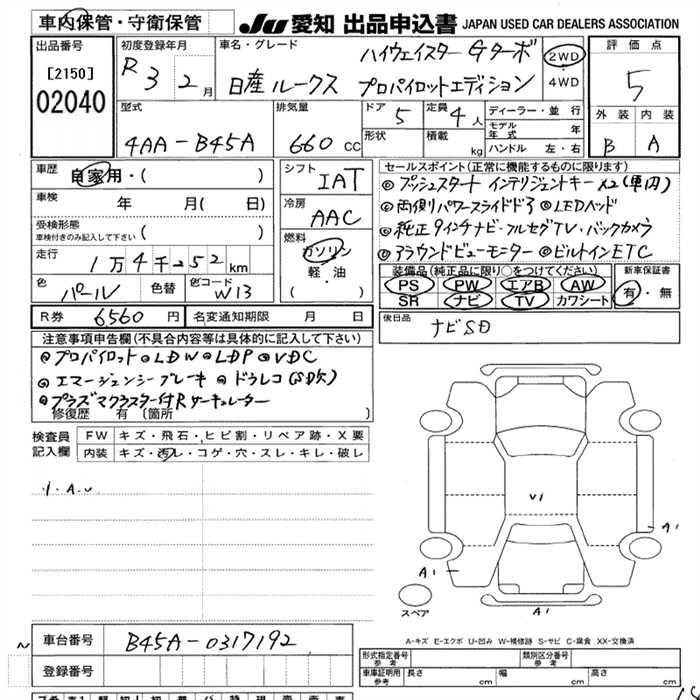 車内保管・守衛保管
JU 愛知 出品申込書 JAPAN USED CAR DEALERS ASSOCIATION
出品番号
[2150]
02040
初度登録年月
R 3 2 月
車名・グレード
日産 ルークス
ハイウェイスター Gターボ
プロパイロットエディション
2WD
4WD
評価点
5
外装 内装
B A
型式
4AA-B45A
排気量
660 CC
ドア 5
形状
定員 4 人
積載 kg
ディーラー・並行
モデル年式 年
ハンドル 左・右
車歴
自家用・( )
車検 年 月( 日)
受検形態
車検付きのみ記入して下さい ( )
走行
1万4千252 km
色 パール 色替 色コード W13
シフト
IAT
冷房
AAC
燃料
ガソリン
軽・油
( )
セールスポイント(正常に機能するものに限ります)
◎プッシュスタート インテリジェントキー×2(車内)
◎両側パワースライドドア ◎LEDヘッド
◎純正9インチナビ・フルセグTV・バックカメラ
◎アラウンドビューモニター ◎ビルトインETC
装備品(純正品に限り○をつけてください)
PS PW エアB AW
SR ナビ TV カワシート
新車保証書
有・無
R券 6560 円 名変通知期限 月 日
後日品
ナビSD
注意事項申告欄(不具合内容等は具体的に記入して下さい)
◎プロパイロット ◎LDW ◎LDP ◎VDC
◎エマージェンシーブレーキ ◎ドラレコ(SD欠)
◎プラズマクラスター付Rサーキュレーター
修復歴 有 〔箇所 〕
検査員記入欄
FW キズ・飛石・ヒビ割・リペア跡・X要
内装 キズ・汚レ・コゲ・穴・スレ・キレ・破レ
V1
A1
A1
A1
スペア
A-キズ E-エクボ U-凹み W-補修跡 S-サビ C-腐食 XX-交換済
車台番号 B45A-0317192
登録番号
形式指定番号 参考
類別区分番号 参考
車庫証明用 参考
長さ cm 幅 cm 高さ cm